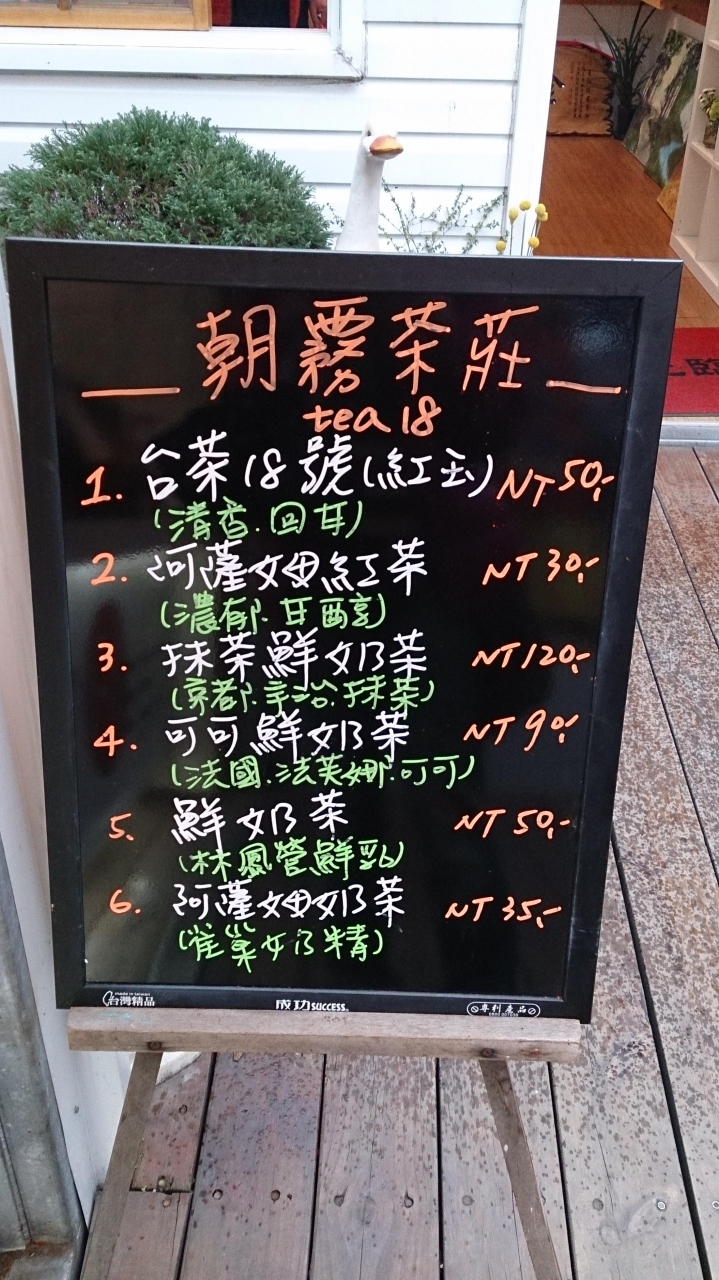 朝霧茶莊
tea 18
1. 台茶18號(紅玉) NT 50,-
(清香.回甘)
2. 阿薩姆紅茶 NT 30,-
(濃郁.甘醇)
3. 抹茶鮮奶茶 NT 120,-
(京都.宇治.抹茶)
4. 可可鮮奶茶 NT 90,-
(法國.法芙娜.可可)
5. 鮮奶茶 NT 50,-
(林鳳營鮮乳)
6. 阿薩姆奶茶 NT 35,-
(雀巢奶精)
made in taiwan
台灣精品
成功 SUCCESS
專利產品